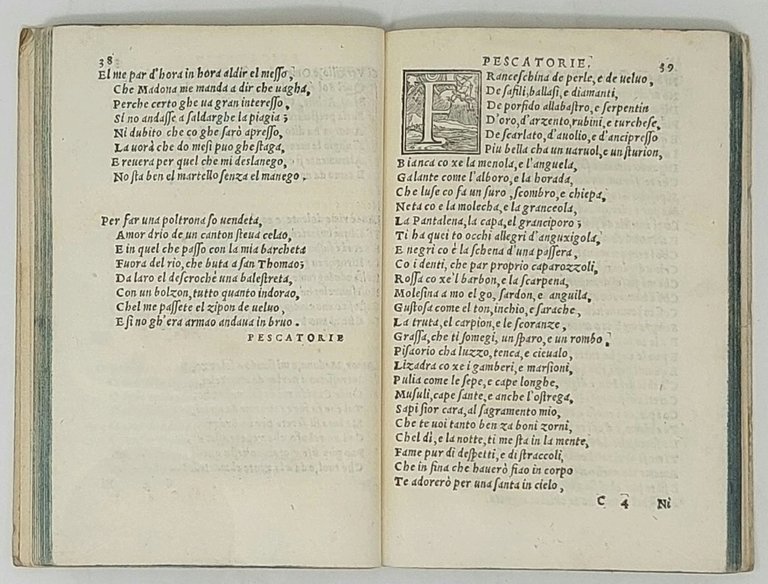 38
El me par d'hora in hora aldir el messo,
Che Madona me manda a dir che uagha,
Perche certo ghe ua gran interesso,
Si no andasse a saldarghe la piagia;
Ni dubito che co ghe sarò apresso,
La uorà che do mesi puo ghe staga,
E reuera per quel che mi deslanego,
No sta ben el martello senza el manego.
Per far una poltrona so uendeta,
Amor drio de un canton steua celao,
E in quel che passo con la mia barcheta
Fuora del rio, che buta a san Thomao;
Da laro el descrochè una balestreta,
Con un bolzon, tutto quanto indorao,
Chel me passete el zipon de ueluo,
E si no gh'era armao andaua in bruo.
PESCATORIE
PESCATORIE.
39
FRanceschina de perle, e de ueluo,
De safili, ballasi, e diamanti,
De porfido allabastro, e serpentin
D'oro, d'arzento, rubini, e turchese,
De scarlato, d'auolio, e d'ancipresso
Piu bella cha un uaruol, e un sturion,
Bianca co xe la menola, e l'anguela,
Galante come l'alboro, e la horada,
Che luse co fa un suro, scombro, e chiepa,
Neta co e la molecha, e la granceola,
La Pantalena, la capa, el granciporo;
Ti ha quei to occhi allegri d'anguxigola,
E negri co è la schena d'una passera,
Co i denti, che par proprio caparozzoli,
Rossa co xe'l barbon, e la scarpena,
Molesina a mo el go, sardon, e anguila,
Gustosa come el ton, inchio, e sarache,
La truta, el carpion, e le scoranze,
Grassa, che ti somegi, un sparo, e un rombo,
Pisaorio cha luzzo, tenca, e cieualo,
Lizadra co xe i gamberi, e marsioni,
Pulia come le sepe, e cape longhe,
Musuli, cape sante, e anche l'ostrega,
Sapi sior cara, al sagramento mio,
Che te uoi tanto ben za boni zorni,
Chel dì, e la notte, ti me sta in la mente,
Fame pur di despetti, e di straccoli,
Che in fina che hauerò fiao in corpo
Te adorerò per una santa in cielo,
C 4
Ni